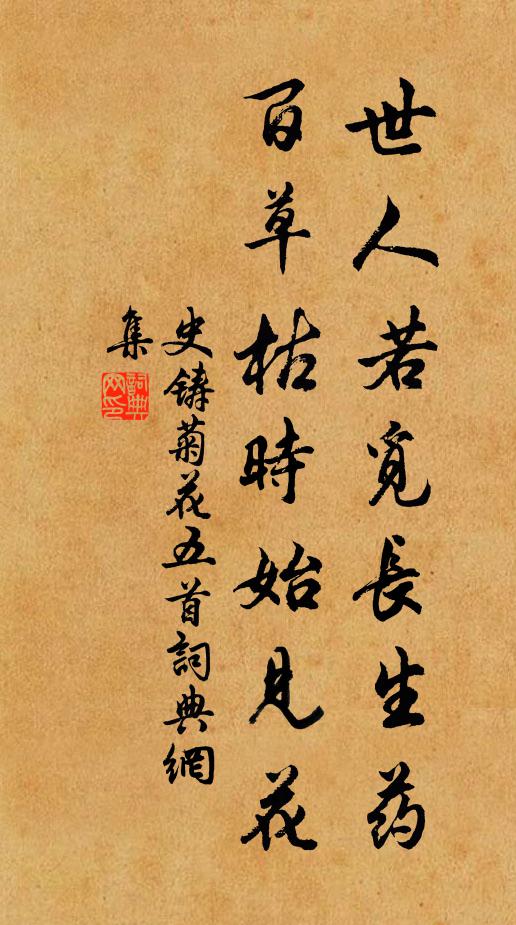 世人若觅長生药
百草枯時始見花
史铸菊花五首詞典網
集
詞典
网印